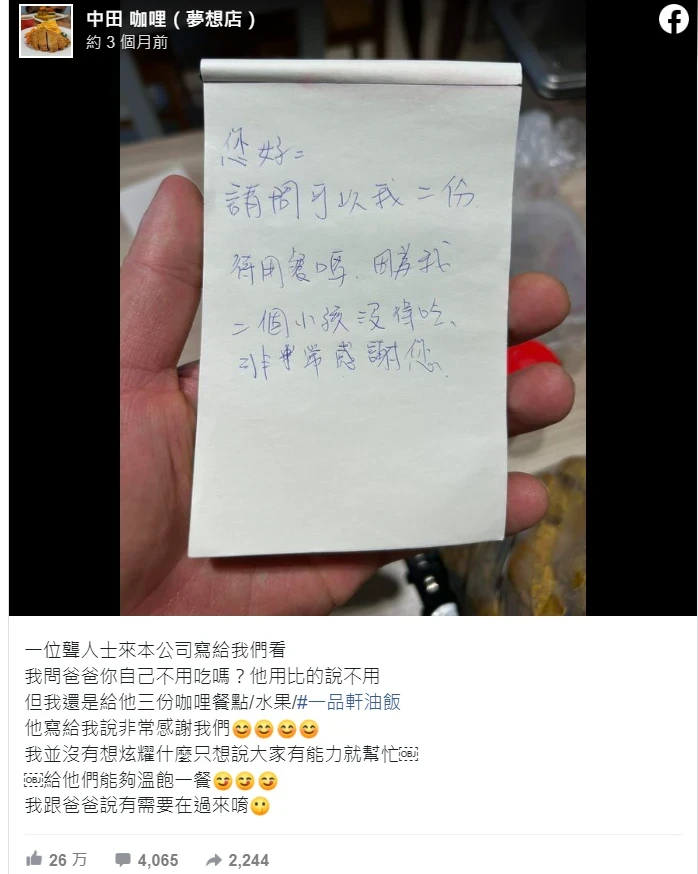 中田 咖哩 ( 夢想店 )
約 3 個月前
您好=
請問可以我二份
待用餐嗎、因為我
二個小孩沒得吃、
非常感謝您
一位聾人士來本公司寫給我們看
我問爸爸你自己不用吃嗎？他用比的說不用
但我還是給他三份咖哩餐點/水果/#一品軒油飯
他寫給我說非常感謝我們😊😊😊😊
我並沒有想炫耀什麼只想說大家有能力就幫忙￼
￼給他們能夠溫飽一餐😋😋😋
我跟爸爸說有需要在過來唷🤫
26 万
4,065
2,244